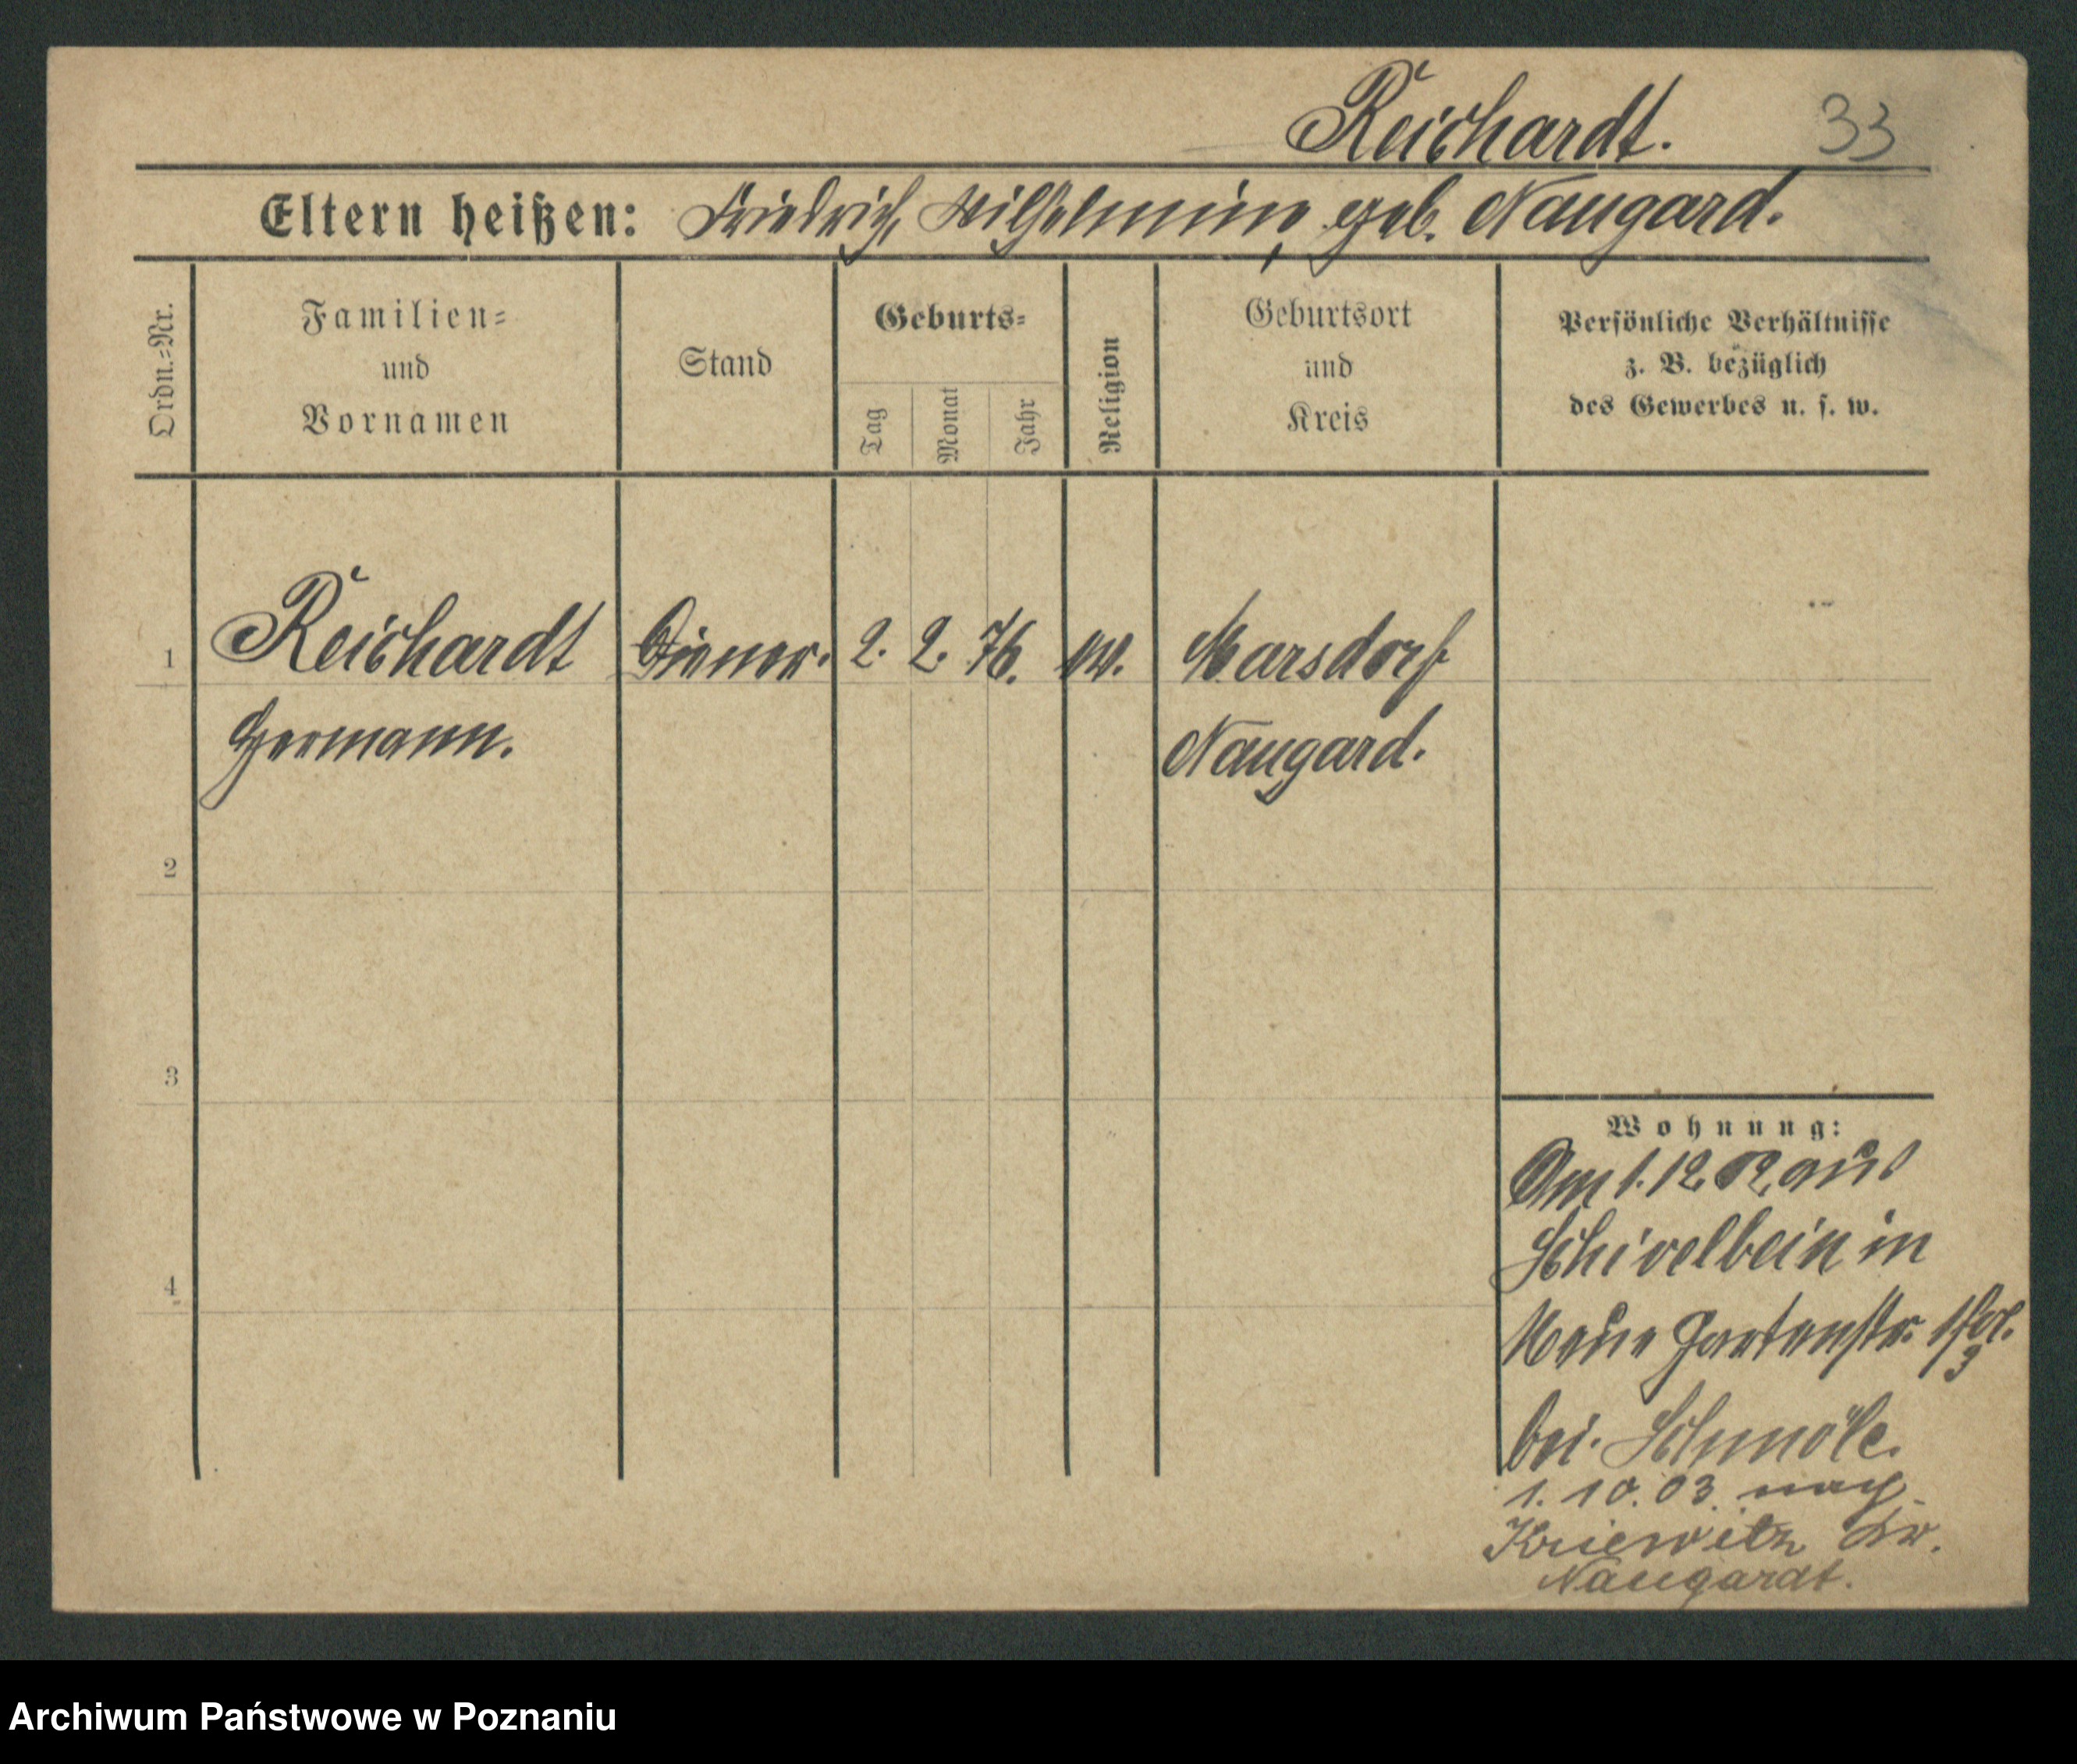 Reichardt. 33
Eltern heißen: Friedrich, Wilhelmine, geb. Naugard.
Ordn.=Nr.
Familien=
und
Vornamen
Stand
Geburts=
Tag
Monat
Jahr
Religion
Geburtsort
und
Kreis
Persönliche Verhältnisse
z. B. bezüglich
des Gewerbes u. s. w.
1 Reichardt Diener. 2. 2. 76. ev. Marsdorf
Hermann. Naugard.
2
3
4
Wohnung:
Am 1.12.02. aus
Schivelbein in
Neue Gartenstr.
bei
1. 10. 03. nach
Kriewitz Kr.
Naugardt.
Archiwum Państwowe w Poznaniu